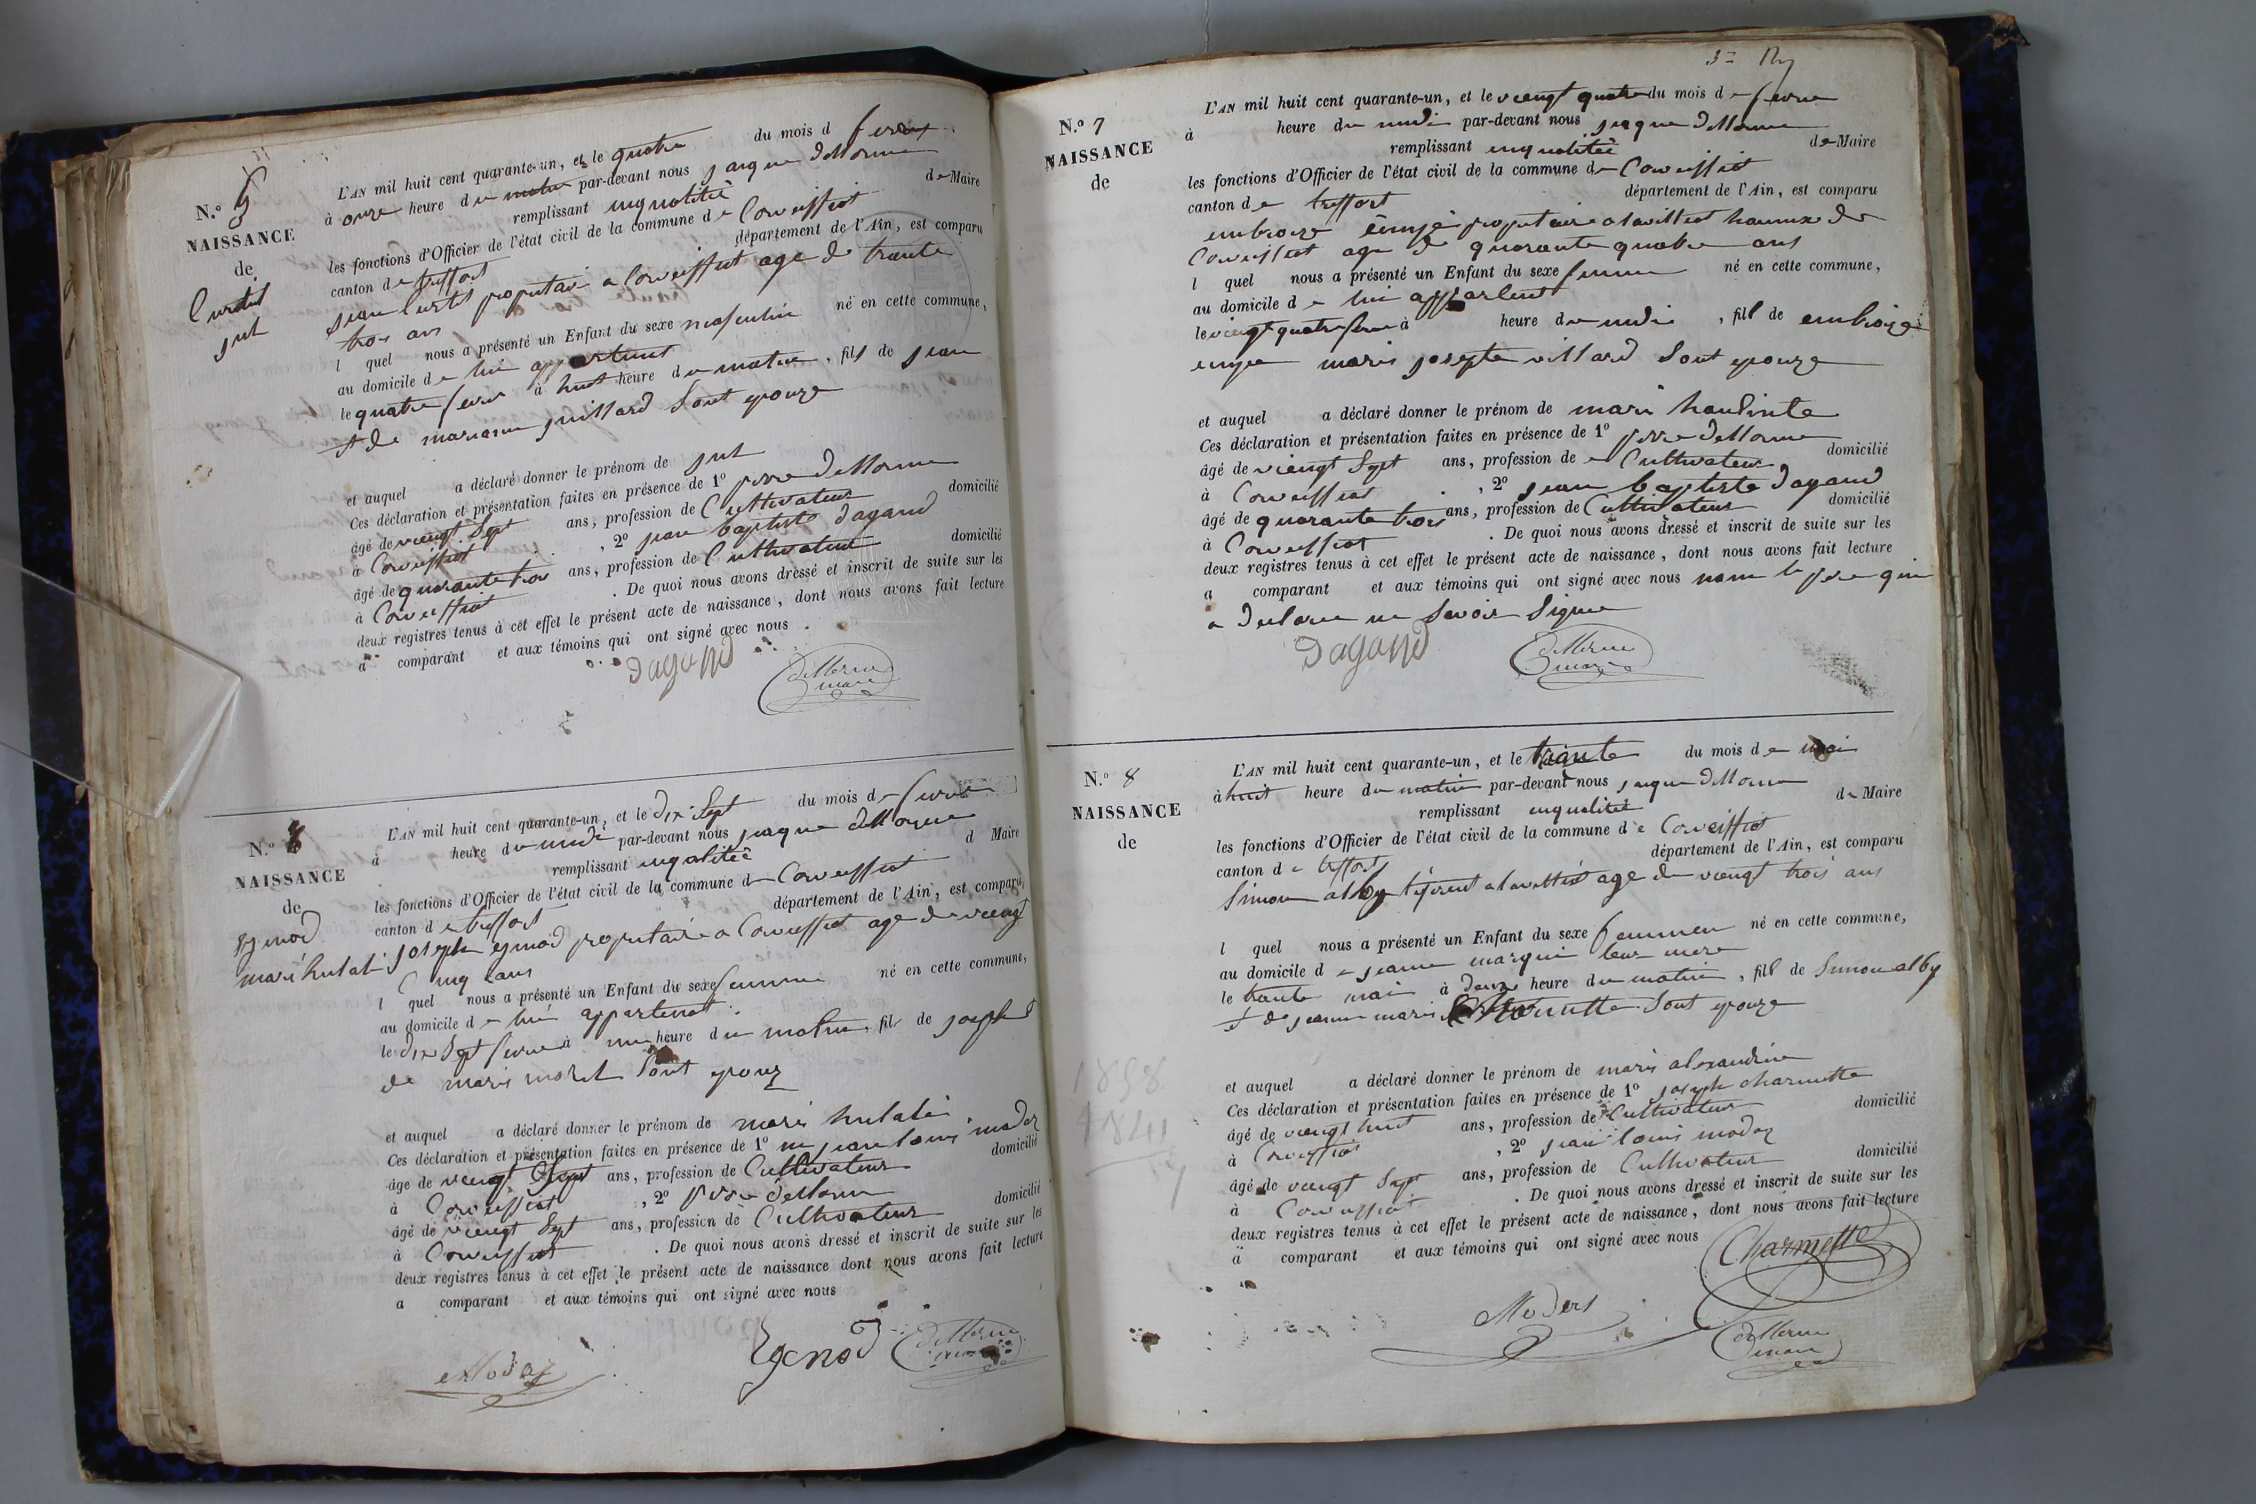 N.º 5
NAISSANCE
de
Curtet
jul
L'AN mil huit cent quarante-un, et le quatre du mois d fevrie
à onze heure du matin par-devant nous jaque dellorme
remplissant enqualitée de Maire
les fonctions d'Officier de l'état civil de la commune de Corveissiat
canton de treffort département de l'Ain, est comparu
jean Curtet propietaire a Corveissiat age de trante
trois ans
l quel nous a présenté un Enfant du sexe masculin né en cette commune,
au domicile de lui appartenent
le quatre fevrie à huit heure du matin, fils de jean
et de mariane juillard sont epouze
et auquel a déclaré donner le prénom de jul
Ces déclaration et présentation faites en présence de 1º pierre dellorme
âgé de viengt Sept ans, profession de Cultivateur domicilié
à Corveissiat, 2º jean baptiste dagand
âgé de quarante trois ans, profession de Cultivateur domicilié
à Corveissiat. De quoi nous avons dressé et inscrit de suite sur les
deux registres tenus à cet effet le présent acte de naissance, dont nous avons fait lecture
a comparant et aux témoins qui ont signé avec nous
Dagand dellorme
maire
N.º
NAISSANCE
de
Eymod
L'AN mil huit cent quarante-un, et le dix Sept du mois de fevrie
à heure du midi par-devant nous jaque dellorme
remplissant enqalitée d Maire
les fonctions d'Officier de l'état civil de la commune de Corveissiat
canton de treffort département de l'Ain, est comparu
joseph eymod propietaire a Corveissiat age de viengt
Cinq ans
l quel nous a présenté un Enfant du sexe femme né en cette commune,
au domicile de lui appartenent
le dix Sept fevrie à une heure du matin, fil de joseph
de marie morel Sont epouz
et auquel a déclaré donner le prénom de marie
Ces déclaration et présentation faites en présence de 1º jean louis modaz
âgé de viengt Sept ans, profession de Cultivateur domicilié
à Corveissiat, 2º pierre dellorme
âgé de viengt Sept ans, profession de Cultivateur domicilié
à Corveissiat. De quoi nous avons dressé et inscrit de suite sur les
deux registres tenus à cet effet le présent acte de naissance dont nous avons fait lecture
a comparant et aux témoins qui ont signé avec nous
Modaz Egenod dellorme
maire
N.º 7
NAISSANCE
de
L'AN mil huit cent quarante-un, et le viengt quatre du mois de fevrie
à heure du midi par-devant nous jaque dellorme
remplissant enqualitée de Maire
les fonctions d'Officier de l'état civil de la commune de Corveissiat
canton de treffort département de l'Ain, est comparu
embroize propietaire a lavilliat
Corveissiat age de quarante quatre ans
l quel nous a présenté un Enfant du sexe femme né en cette commune,
au domicile de lui appartenent
le viengt quatre fevrie à heure du midi, fill de embroize
marie josepte villard Sont epouze
et auquel a déclaré donner le prénom de marie
Ces déclaration et présentation faites en présence de 1º pierre dellorme
âgé de viengt Sept ans, profession de Cultivateur domicilié
à Corveissiat, 2º jean baptiste dagand
âgé de quarante trois ans, profession de Cultivateur domicilié
à Corveissiat. De quoi nous avons dressé et inscrit de suite sur les
deux registres tenus à cet effet le présent acte de naissance, dont nous avons fait lecture
a comparant et aux témoins qui ont signé avec nous nom le pere qui
a declaree ne Savoir Signer
Dagand dellorme
maire
N.º 8
NAISSANCE
de
L'AN mil huit cent quarante-un, et le trante du mois de mai
à huit heure du matin par-devant nous jaque dellorme
remplissant enqualitée de Maire
les fonctions d'Officier de l'état civil de la commune de Corveissiat
canton de treffort département de l'Ain, est comparu
Simon alby a lavilliat age de viengt trois ans
l quel nous a présenté un Enfant du sexe femmen né en cette commune,
au domicile de jeanne leur mere
le trante mai à deuze heure du matin, fill de Simon alby
et de jeanne marie Sont epouze
et auquel a déclaré donner le prénom de marie alexandrine
Ces déclaration et présentation faites en présence de 1º joseph charmette
âgé de viengt huit ans, profession de Cultivateur domicilié
à Corveissiat, 2º jean louis modaz
âgé de viengt Sept ans, profession de Cultivateur domicilié
à Corveissiat. De quoi nous avons dressé et inscrit de suite sur les
deux registres tenus à cet effet le présent acte de naissance, dont nous avons fait lecture
a comparant et aux témoins qui ont signé avec nous
Charmette
dellorme
maire
1841